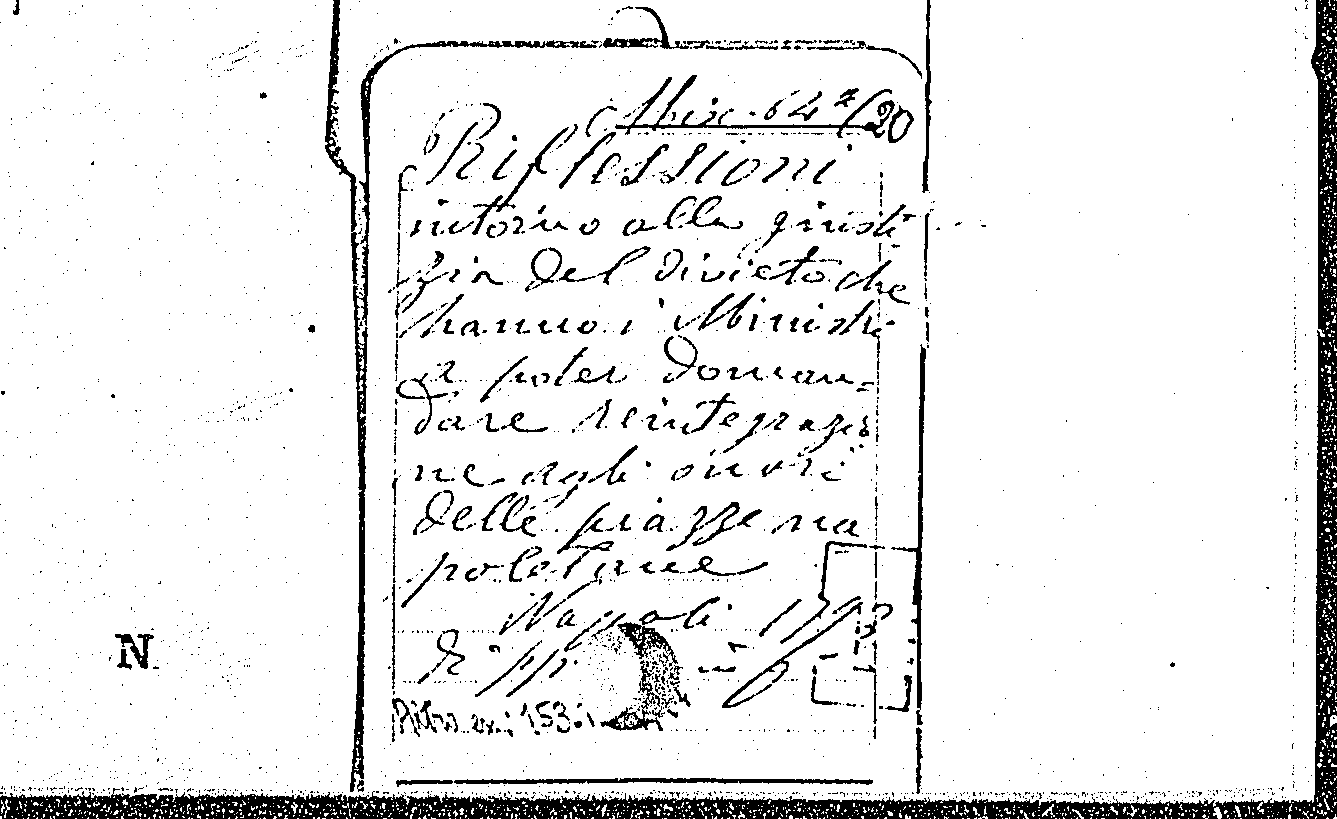 Misc. 64 2/(20
Riflessioni
intorno alla giusti
zia del divieto che
hanno i Ministri
a poter doman=
dare reintegrazio
ne agli onori
delle piazze na
poletane
Napoli 1793
Di pp. in 8
Altro es.: 153.
N